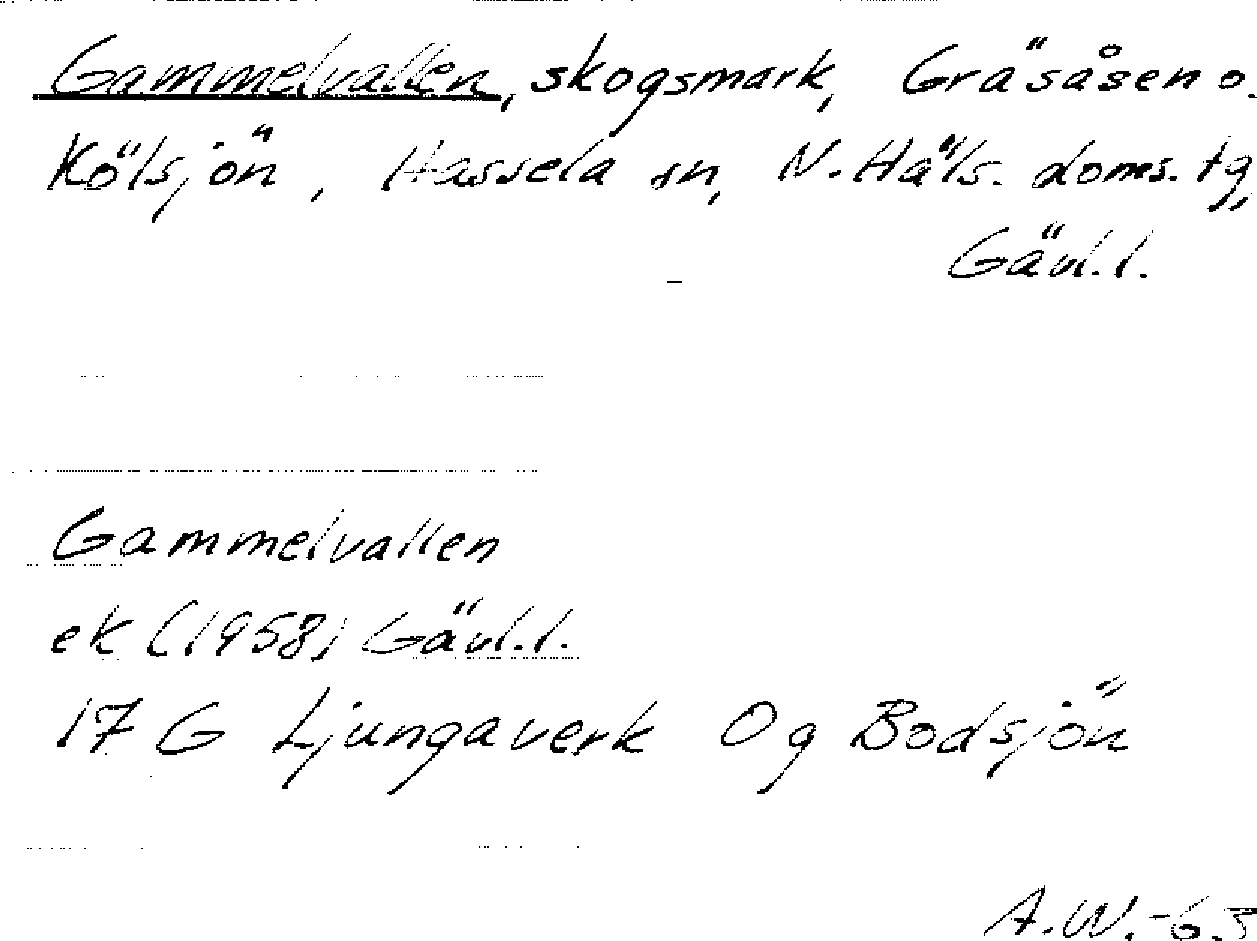 Gammelvallen, skogsmark, Gräsåsen o.
Kölsjön, Hassela sn, N. Häls. doms. tg,
Gävl.l.
Gammelvallen
ek (1958) Gävl.l.
17 G Ljungaverk 0g Bodsjön
A.W.-63